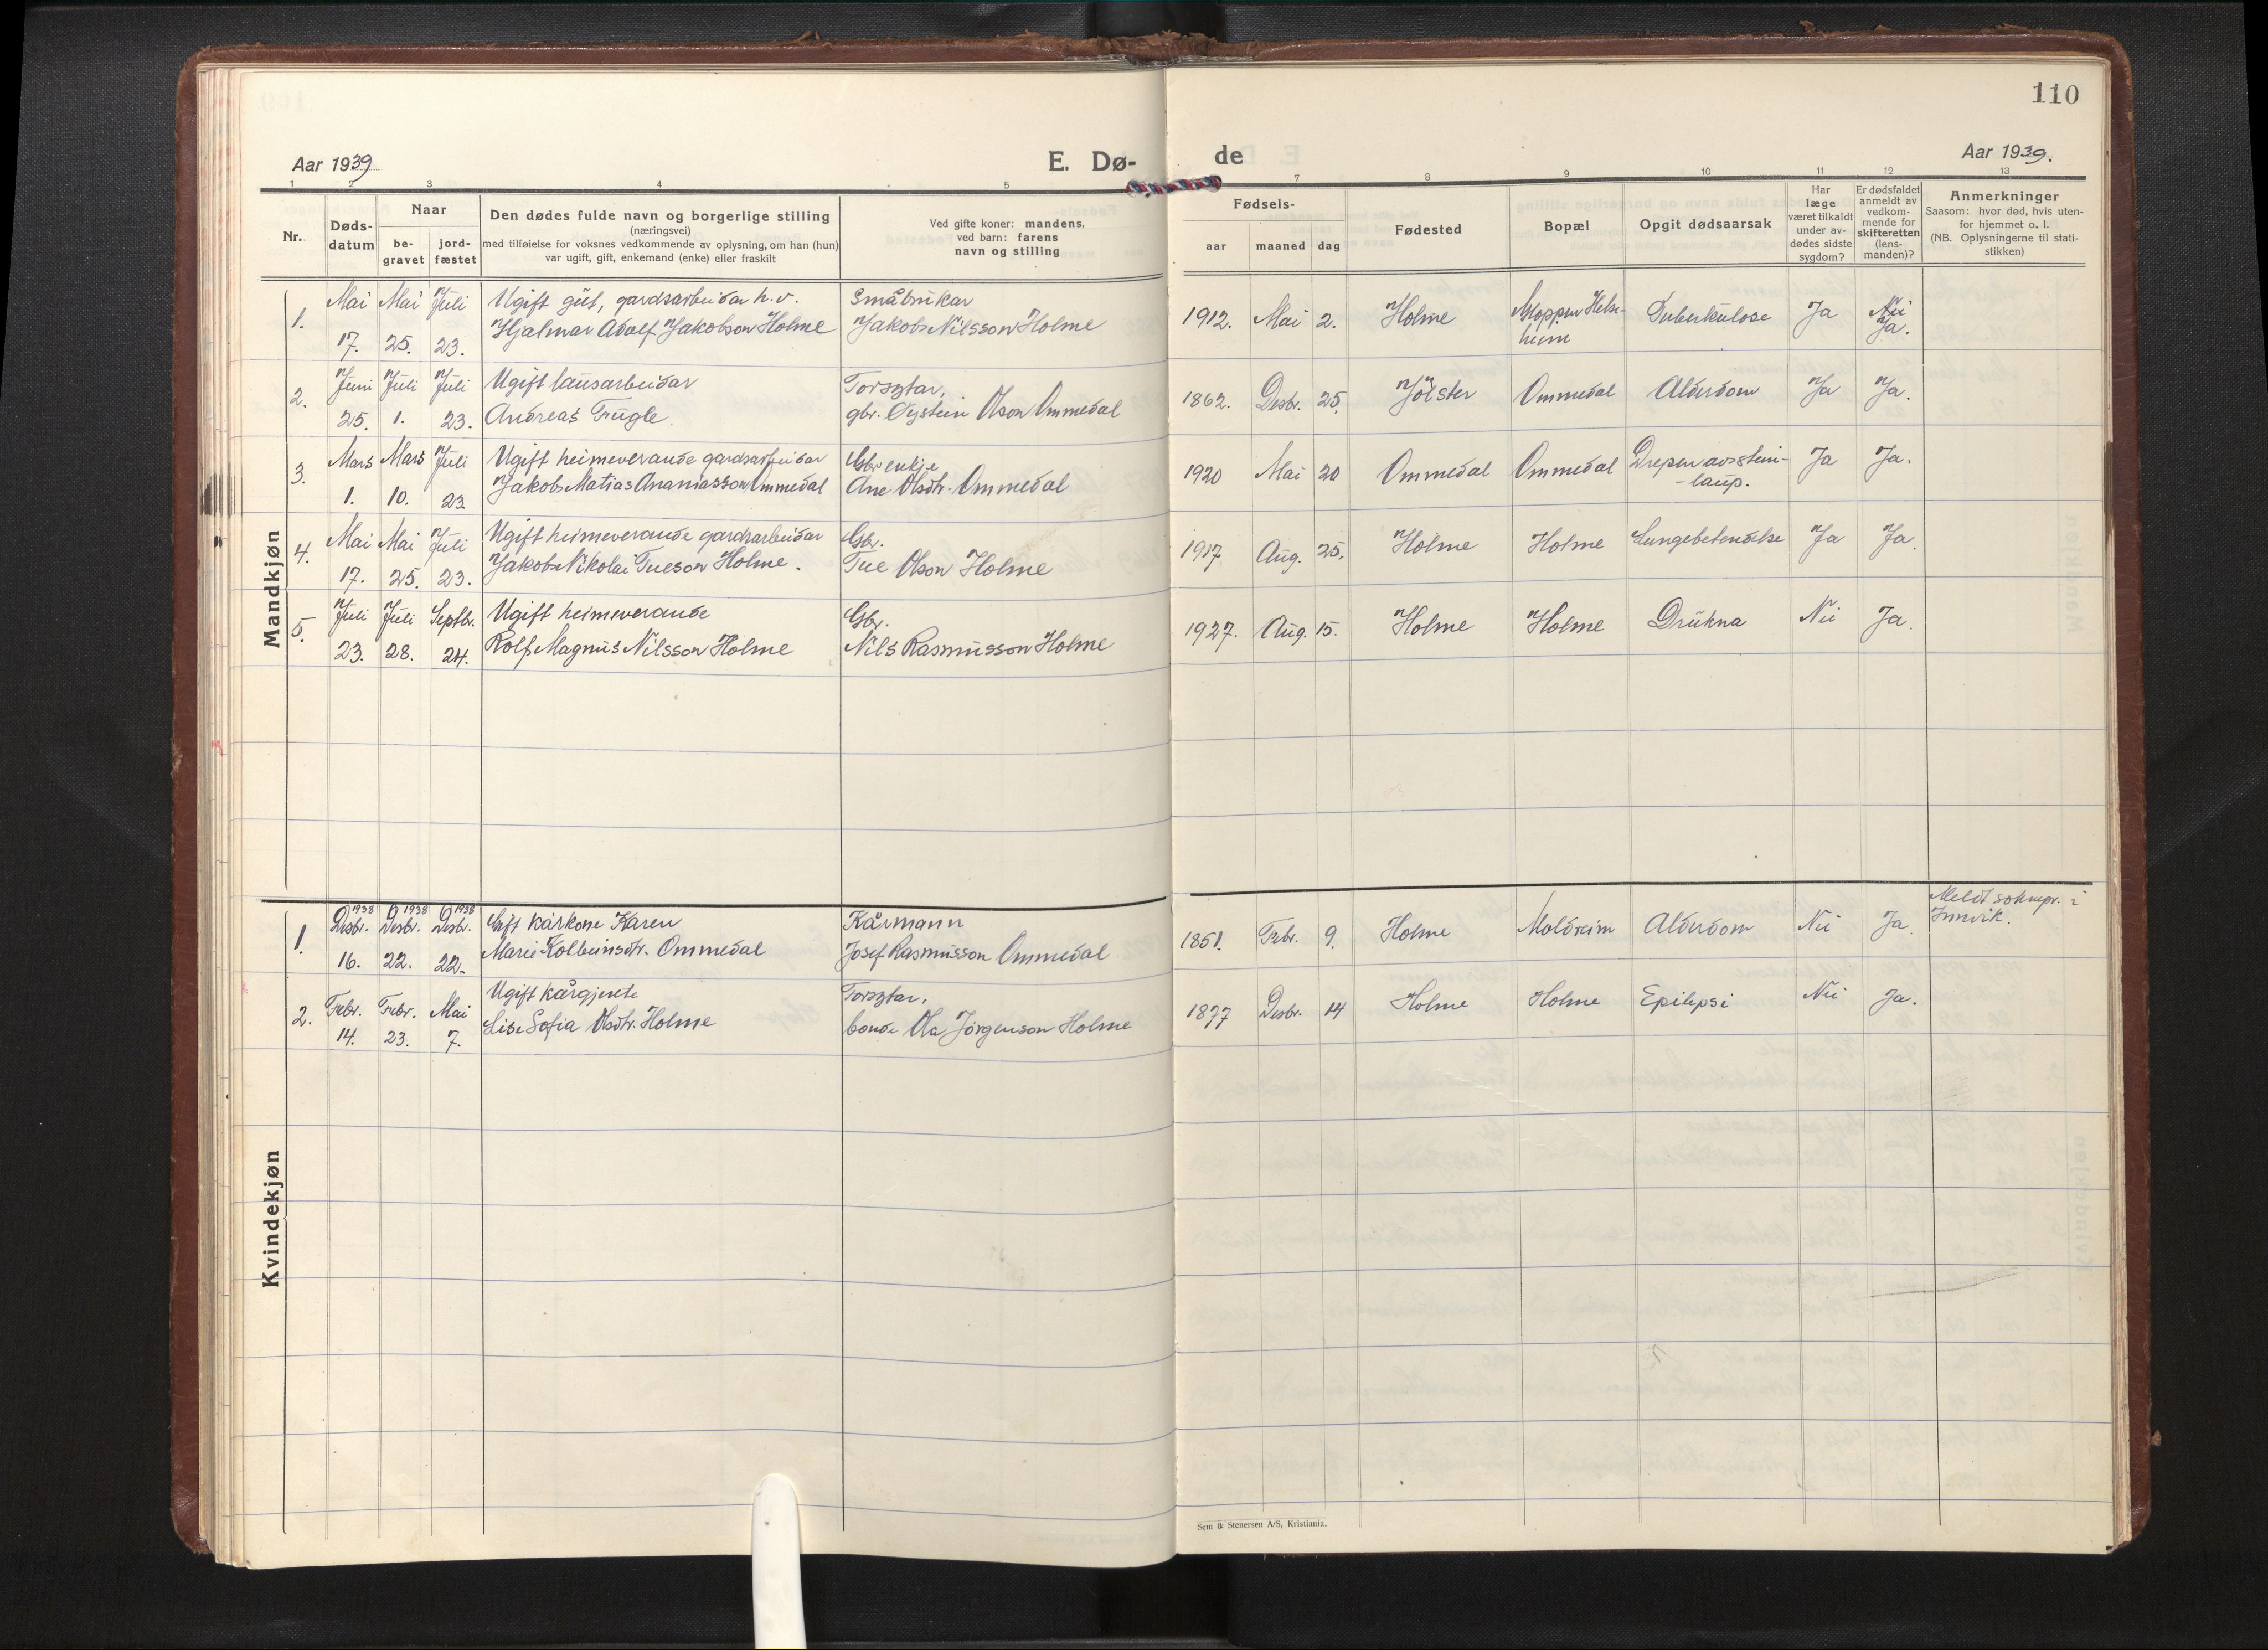 110
Aar 1939
E. Dø-
de
Aar 1939.
1 2 3 4 5 7 8 9 10 11 12 13
Nr.
Døds-
datum
Naar
be-
gravet
jord-
fæstet
Den dødes fulde navn og borgerlige stilling
(næringsvei)
med tilføielse for voksnes vedkommende av oplysning, om han (hun)
var ugift, gift, enkemand (enke) eller fraskilt
Ved gifte koner: mandens,
ved barn: farens
navn og stilling
Fødsels-
aar maaned dag
Fødested
Bopæl
Opgit dødsaarsak
Har
læge
været tilkaldt
under av-
dødes sidste
sygdom?
Er dødsfaldet
anmeldt av
vedkom-
mende for
skifteretten
(lens-
manden)?
Anmerkninger
Saasom: hvor død, hvis uten-
for hjemmet o. l.
(NB. Oplysningerne til stati-
stikken)
Mandkjøn
1. Mai Mai Juli Ugift gut, gardsarbeidar h.v. Småbrukar
17. 25. 23. Hjalmar Adolf Jakobson Holme Jakob Nilsson Holme 1912. Mai 2. Holme Gloppen Helse-
heim Tuberkulose Ja Nei
Ja.
2. Juni Juli Juli Ugift lausarbeidar Torsytar,
25. 1. 23. Andreas Trugle. gbr. Øystein Olson Ommedal 1862. Desbr. 25. Jølster Ommedal Alderdom Ja Ja.
3. Mars Mars Juli Ugift heimeverande gardsarbeidar Gbr enkje
1. 10. 23. Jakob Matias Ananiasson Ommedal Ane Olsdtr. Ommedal 1920 Mai 20 Ommedal Ommedal Drepen av stein-
-laup. Ja Ja.
4. Mai Mai Juli Ugift heimeverande gardsarbeidar Gbr.
17. 25. 23. Jakob Nikolai Tueson Holme. Tue Olson Holme 1917 Aug. 25. Holme Holme Lungebetendelse Ja Ja.
5. Juli Juli Septbr. Ugift heimeverande Gbr.
23. 28. 24. Rolf Magnus Nilsson Holme Nils Rasmusson Holme 1927. Aug. 15. Holme Holme Drukna Nei Ja.
Kvindekjøn
1938 1938 1938
1. Desbr. Desbr. Desbr. Gift kårkone Karen Kårmann
16. 22. 22. Marie Kolbeinsdtr. Ommedal Josef Rasmusson Ommedal 1851. Febr. 9. Holme Moldreim Alderdom Nei Ja. Meldt soknepr. i
Innvik.
2. Febr. Febr. Mai Ugift kårgjente Torsytar,
14. 23. 7. Lise Sofia Olsdtr. Holme bonde Ola Jörgenson Holme 1877 Desbr. 14 Holme Holme Epilepsi Nei Ja.
Sem & Stenersen A/S, Kristiania.